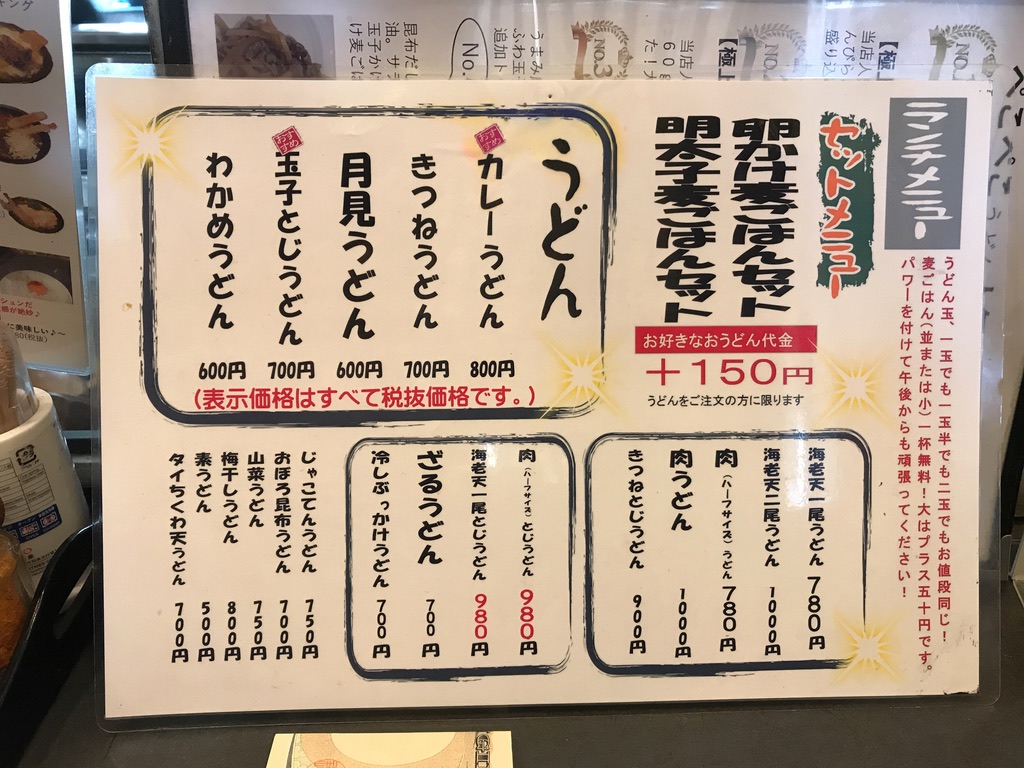 ランチメニュー
うどん玉、一玉でも一玉半でも二玉でもお値段同じ！
麦ごはん（並または小）一杯無料！大はプラス五十円です。
パワーを付けて午後からも頑張ってください！
セットメニュー
卵かけ麦ごはんセット
明太子麦ごはんセット
お好きなおうどん代金
＋150円
うどんをご注文の方に限ります
うどん
おすすめ
カレーうどん 800円
きつねうどん 700円
月見うどん 600円
おすすめ
玉子とじうどん 700円
わかめうどん 600円
（表示価格はすべて税抜価格です。）
海老天一尾うどん 780円
海老天二尾うどん 1000円
肉（ハーフサイズ）うどん 780円
肉うどん 1000円
きつねとじうどん 900円
肉（ハーフサイズ）とじうどん 980円
海老天一尾とじうどん 980円
ざるうどん 700円
冷しぶっかけうどん 700円
じゃこてんうどん 750円
おぼろ昆布うどん 700円
山菜うどん 750円
梅干しうどん 800円
素うどん 500円
タイちくわ天うどん 700円
当店人
盛り込
【極上
当店人
60g
た！ナ
うまみ
ふわ玉
追加ト
No.
昆布だし
油。サラ
玉子かけ
け麦ごは
NO.3
に美味しい♪～